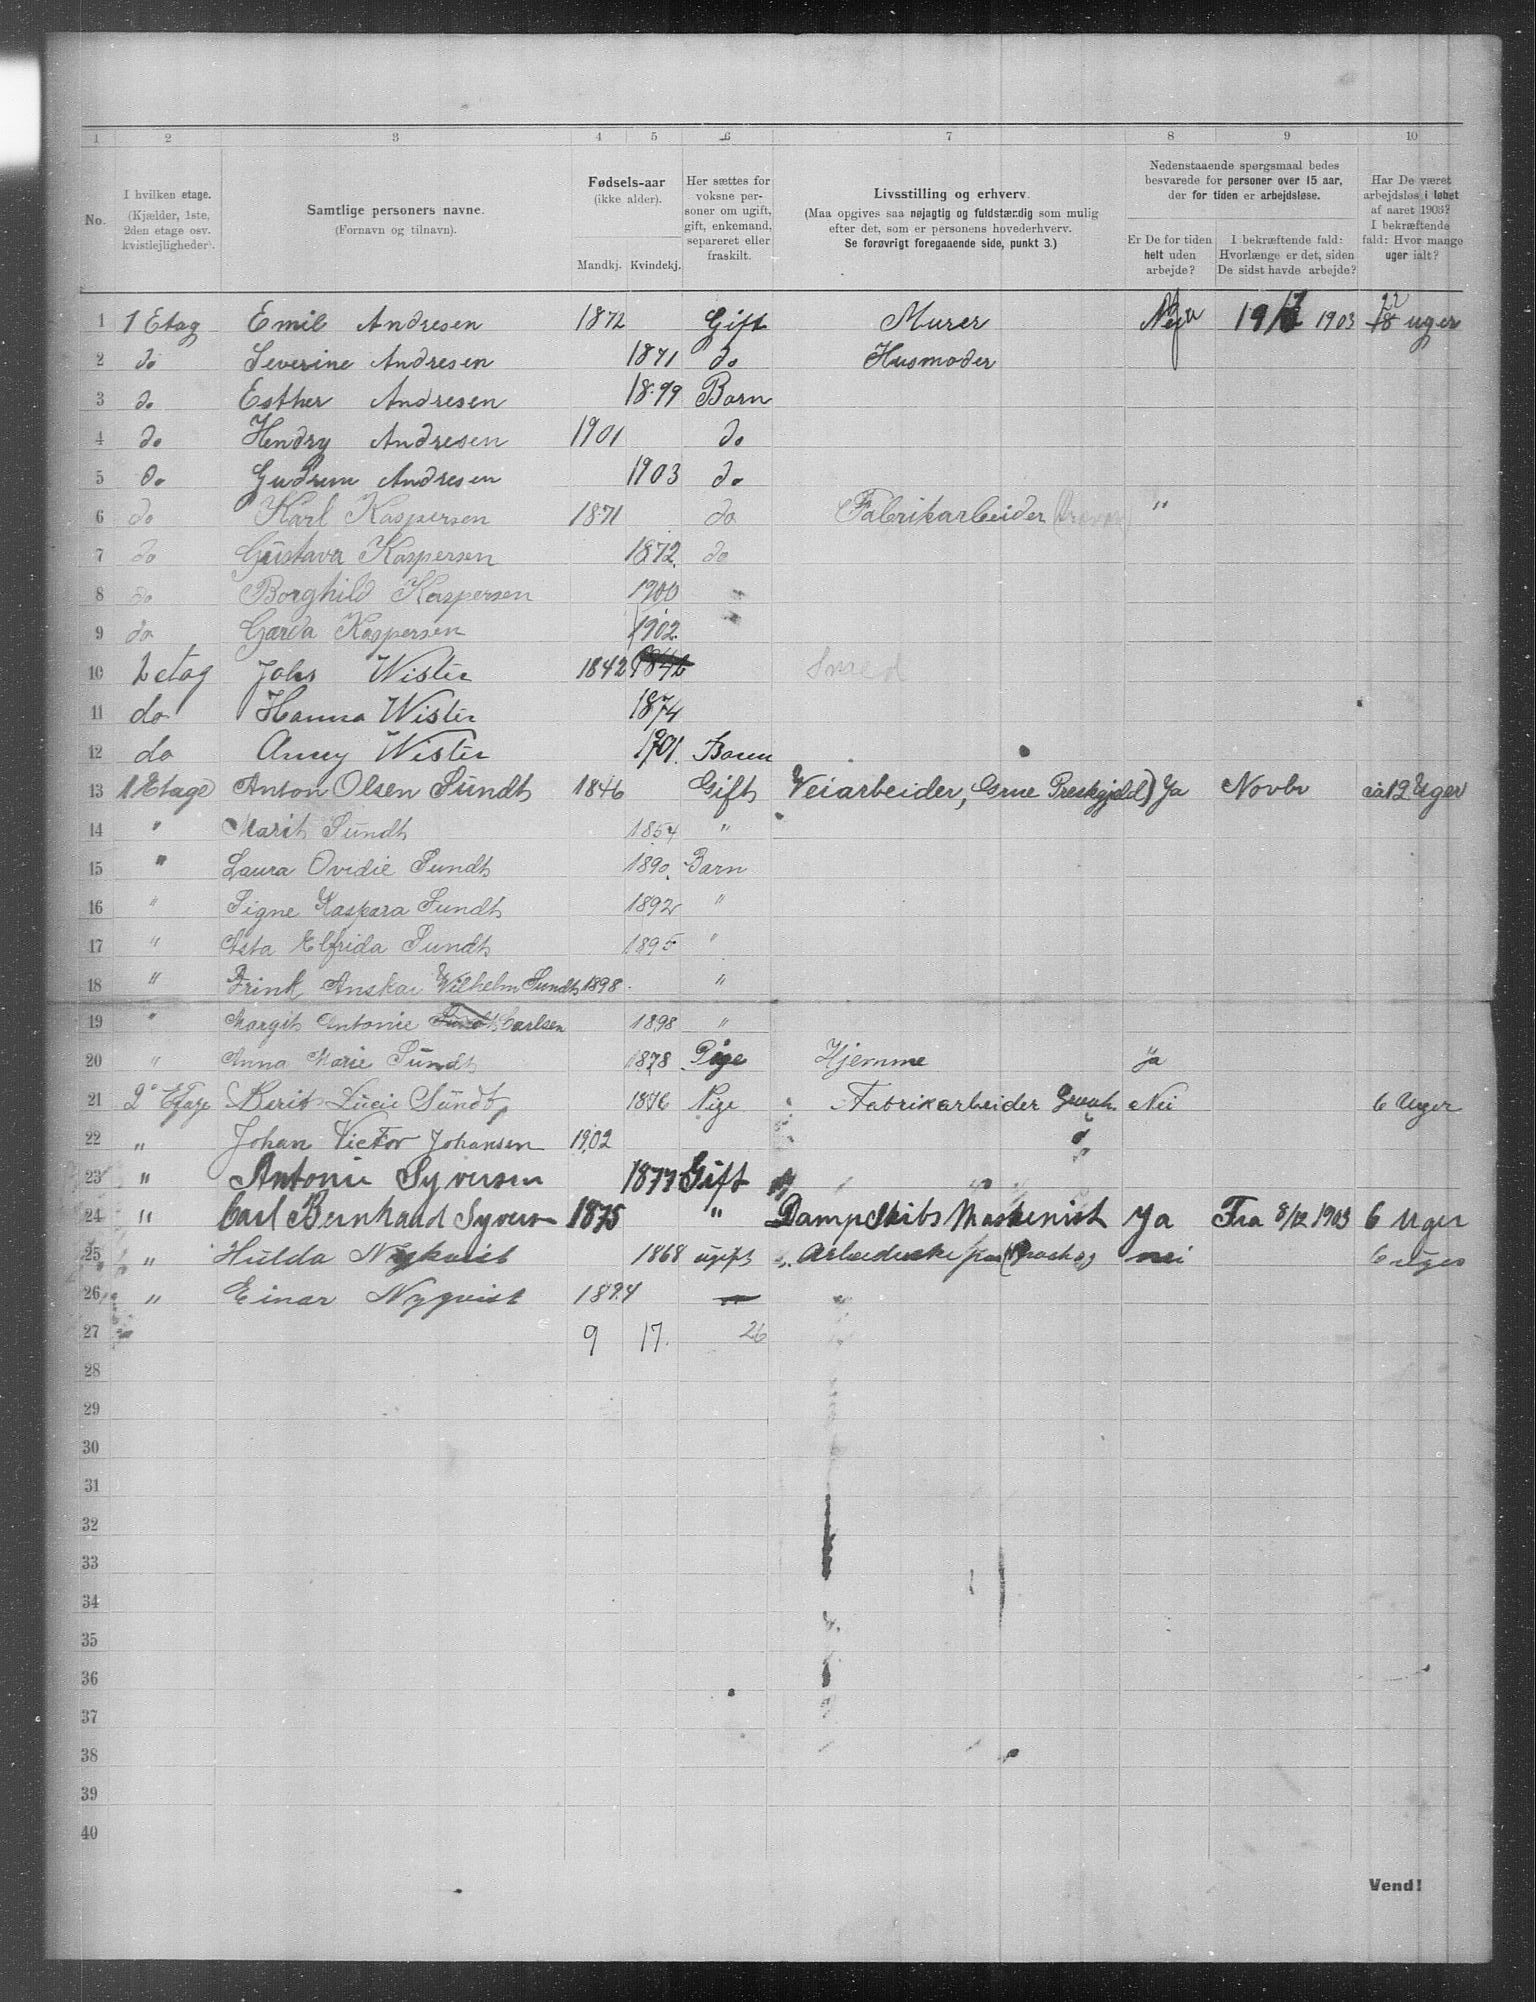 1 2 3 4 5 6 7 8 9 10
No.
I hvilken etage. (Kjælder, 1ste, 2den etage osv. kvistleiligheder).
Samtlige personers navne. (Fornavn og tilnavn).
Fødsels-aar (ikke alder). Mandkj. Kvindekj.
Her sættes for voksne personer om ugift, gift, enkemand, separeret eller fraskilt.
Livsstilling og erhverv. (Maa opgives saa nøjagtig og fuldstændig som mulig efter det, som er personens hovederhverv. Se forøvrigt foregaaende side, punkt 3.)
Nedenstaaende spørgsmaal bedes besvarede for personer over 15 aar, der for tiden er arbejdsløse.
Er De for tiden helt uden arbejde?
I bekræftende fald: Hvorlænge er det, siden De sidst havde arbejde?
Har De været arbejdsløs i løbet af aaret 1903? I bekræftende fald: Hvor mange uger ialt?
1 1 Etag Emil Andresen 1872 Gift Murer Ja 19/12 1903 22 uger
2 do Severine Andresen 1871 do Husmoder
3 do Esther Andresen 1899 Barn
4 do Hendry Andresen 1901 do
5 do Gudrun Andresen 1903 do
6 do Karl Kaspersen 1871 do Fabrikarbeider "
7 do Gustava Kaspersen 1872 do
8 do Borghild Kaspersen 1900 "
9 do Gærda Kaspersen 1902 "
10 2 etag Johs Wister 1842 1846 Smed
11 do Hanna Wister 1874
12 do Anny Wister 1901. Barn
13 1 Etage Anton Olsen Sundt 1846 Gift Veiarbeider, Grue Prestgjeld) Ja Novbr ca 12 Uger
14 " Marit Sundt 1854 "
15 " Laura Ovidie Sundt 1890. Barn
16 " Signe Kaspara Sundt 1892 "
17 " Asta Elfrida Sundt 1895 "
18 " Frink Anskar Vilhelm Sundt 1898. "
19 " Margit Antonie Sundt Carlsen 1898 "
20 " Anna Marie Sundt 1878 Pige Hjemme Ja
21 2 Etage Berit Lucie Sundt 1876 Pige Fabrikarbeider Nei 6 Uger
22 " Johan Victor Johansen 1902
23 " Antonie Syversen 1877 Gift
24 " Carl Bernhard Syvers 1875 " Dampskibs Maskenist Ja Fra 8/12 1903 6 Uger
25 " Hulda Nykvist 1868 ugift nei 6 uger
26 " Einar Nyqvist 1894
27 9 17. 26
28
29
30
31
32
33
34
35
36
37
38
39
40
Vend!